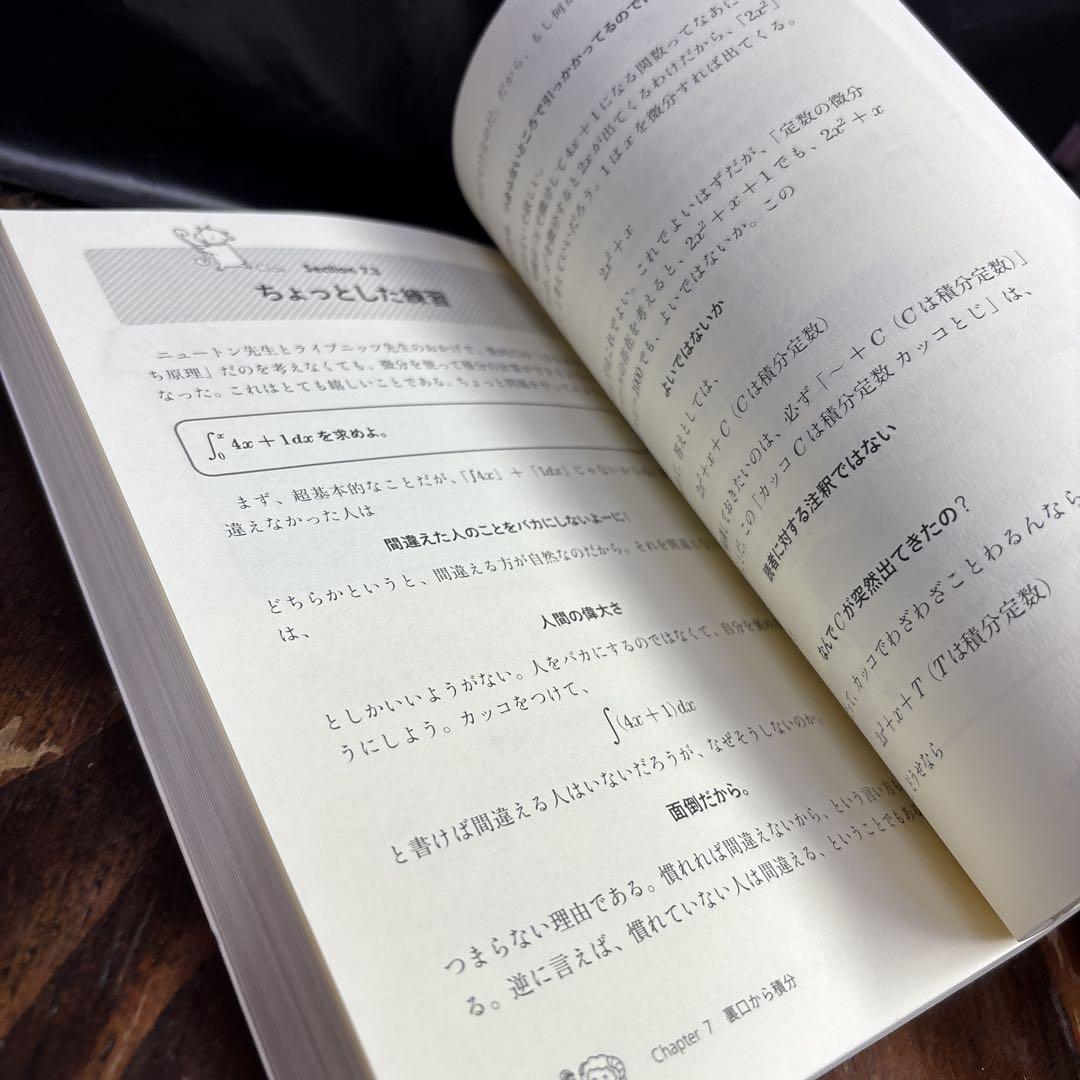 Section 7.3
ちょっとした練習
ニュートン先生とライプニッツ先生のおかげで、
ち原理」だのを考えなくても、微分を使って積分の計算ができ
なった。これはとても嬉しいことである。ちょっと問題を
∫₀ˣ 4x + 1dx を求めよ。
まず、超基本的なことだが、「∫4x」+「1dx」じゃないから
違えなかった人は
間違えた人のことをバカにしないよーに!
どちらかというと、間違える方が自然なのだから。それを間違え
は、
人間の偉大さ
としかいいようがない。人をバカにするのではなくて、自分を褒め
うにしよう。カッコをつけて、
∫(4x + 1)dx
と書けば間違える人はいないだろうが、なぜそうしないのか。
面倒だから。
つまらない理由である。慣れれば間違えないから、という言い方も
る。逆に言えば、慣れていない人は間違える、ということでもある
Chapter 7 裏口から積分
だから、もし何か
つまらないところで引っかかってるので
微分して 4x + 1 になる関数ってなあに
を微分すると 2x が出てくるわけだから、「2x²」
いいだろう。1 は x を微分すれば出てくる。
2x² + x
これでよい。これでよいはずだが、「定数の微分
の存在を考えると、2x² + x + 1 でも、2x² + x
− 1000 でも、よいではないか。この
よいではないか
答えとしては、
2x² + x + C (C は積分定数)
しておきたいのは、必ず「〜 + C (C は積分定数)」
この「カッコ C は積分定数 カッコとじ」は、
読者に対する注釈ではない
なんで C が突然出てきたの?
カッコでわざわざことわるんなら
2x² + x + T (T は積分定数)
どうせなら